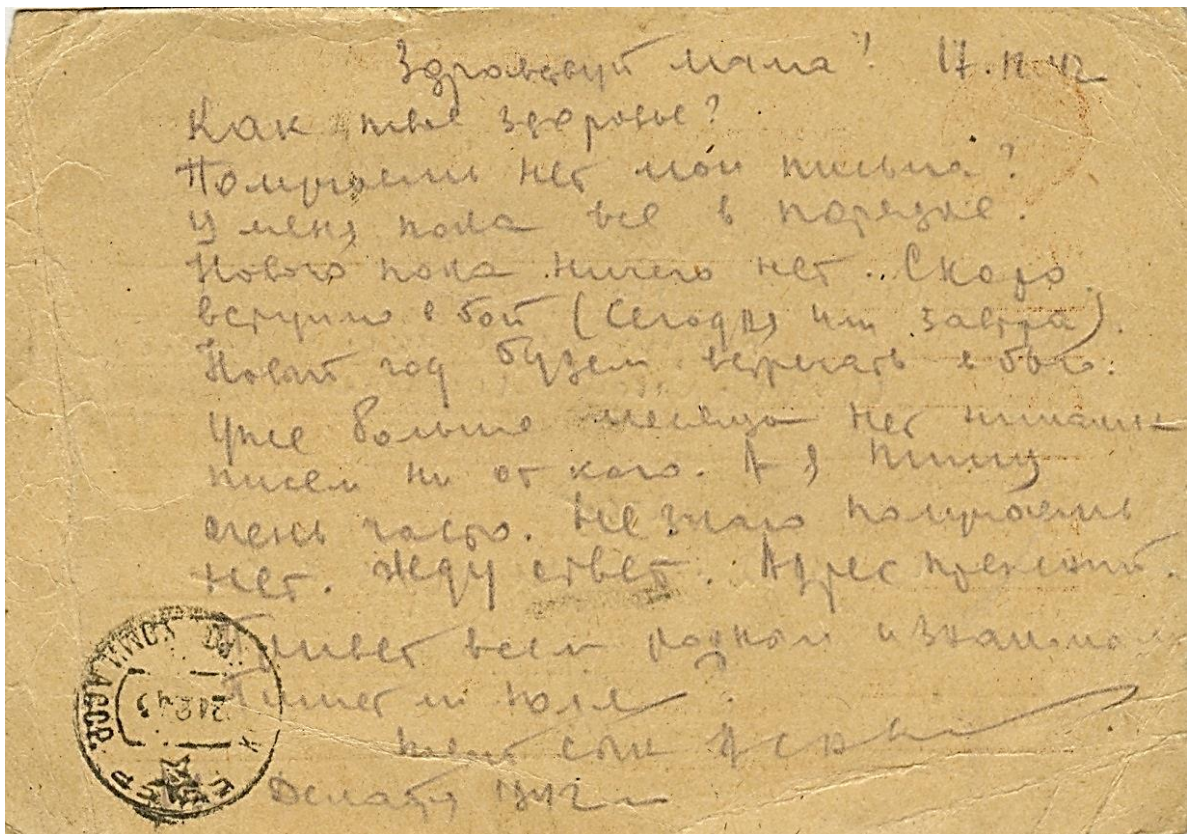 Здравствуй мама! 17.12.42
Как твое здоровье?
Получаешь нет мои письма?
У меня пока все в порядке.
Нового пока ничего нет. Скоро
вступим в бой (Сегодня или завтра).
Новый год будем встречать в бою.
Уже больше месяца нет никаких
писем ни от кого. А я пишу
очень часто. Не знаю получаешь
нет. Жду ответ. Адрес прежний.
Привет всем родным и знакомым
Пишет ли Юля
твой сын
1942